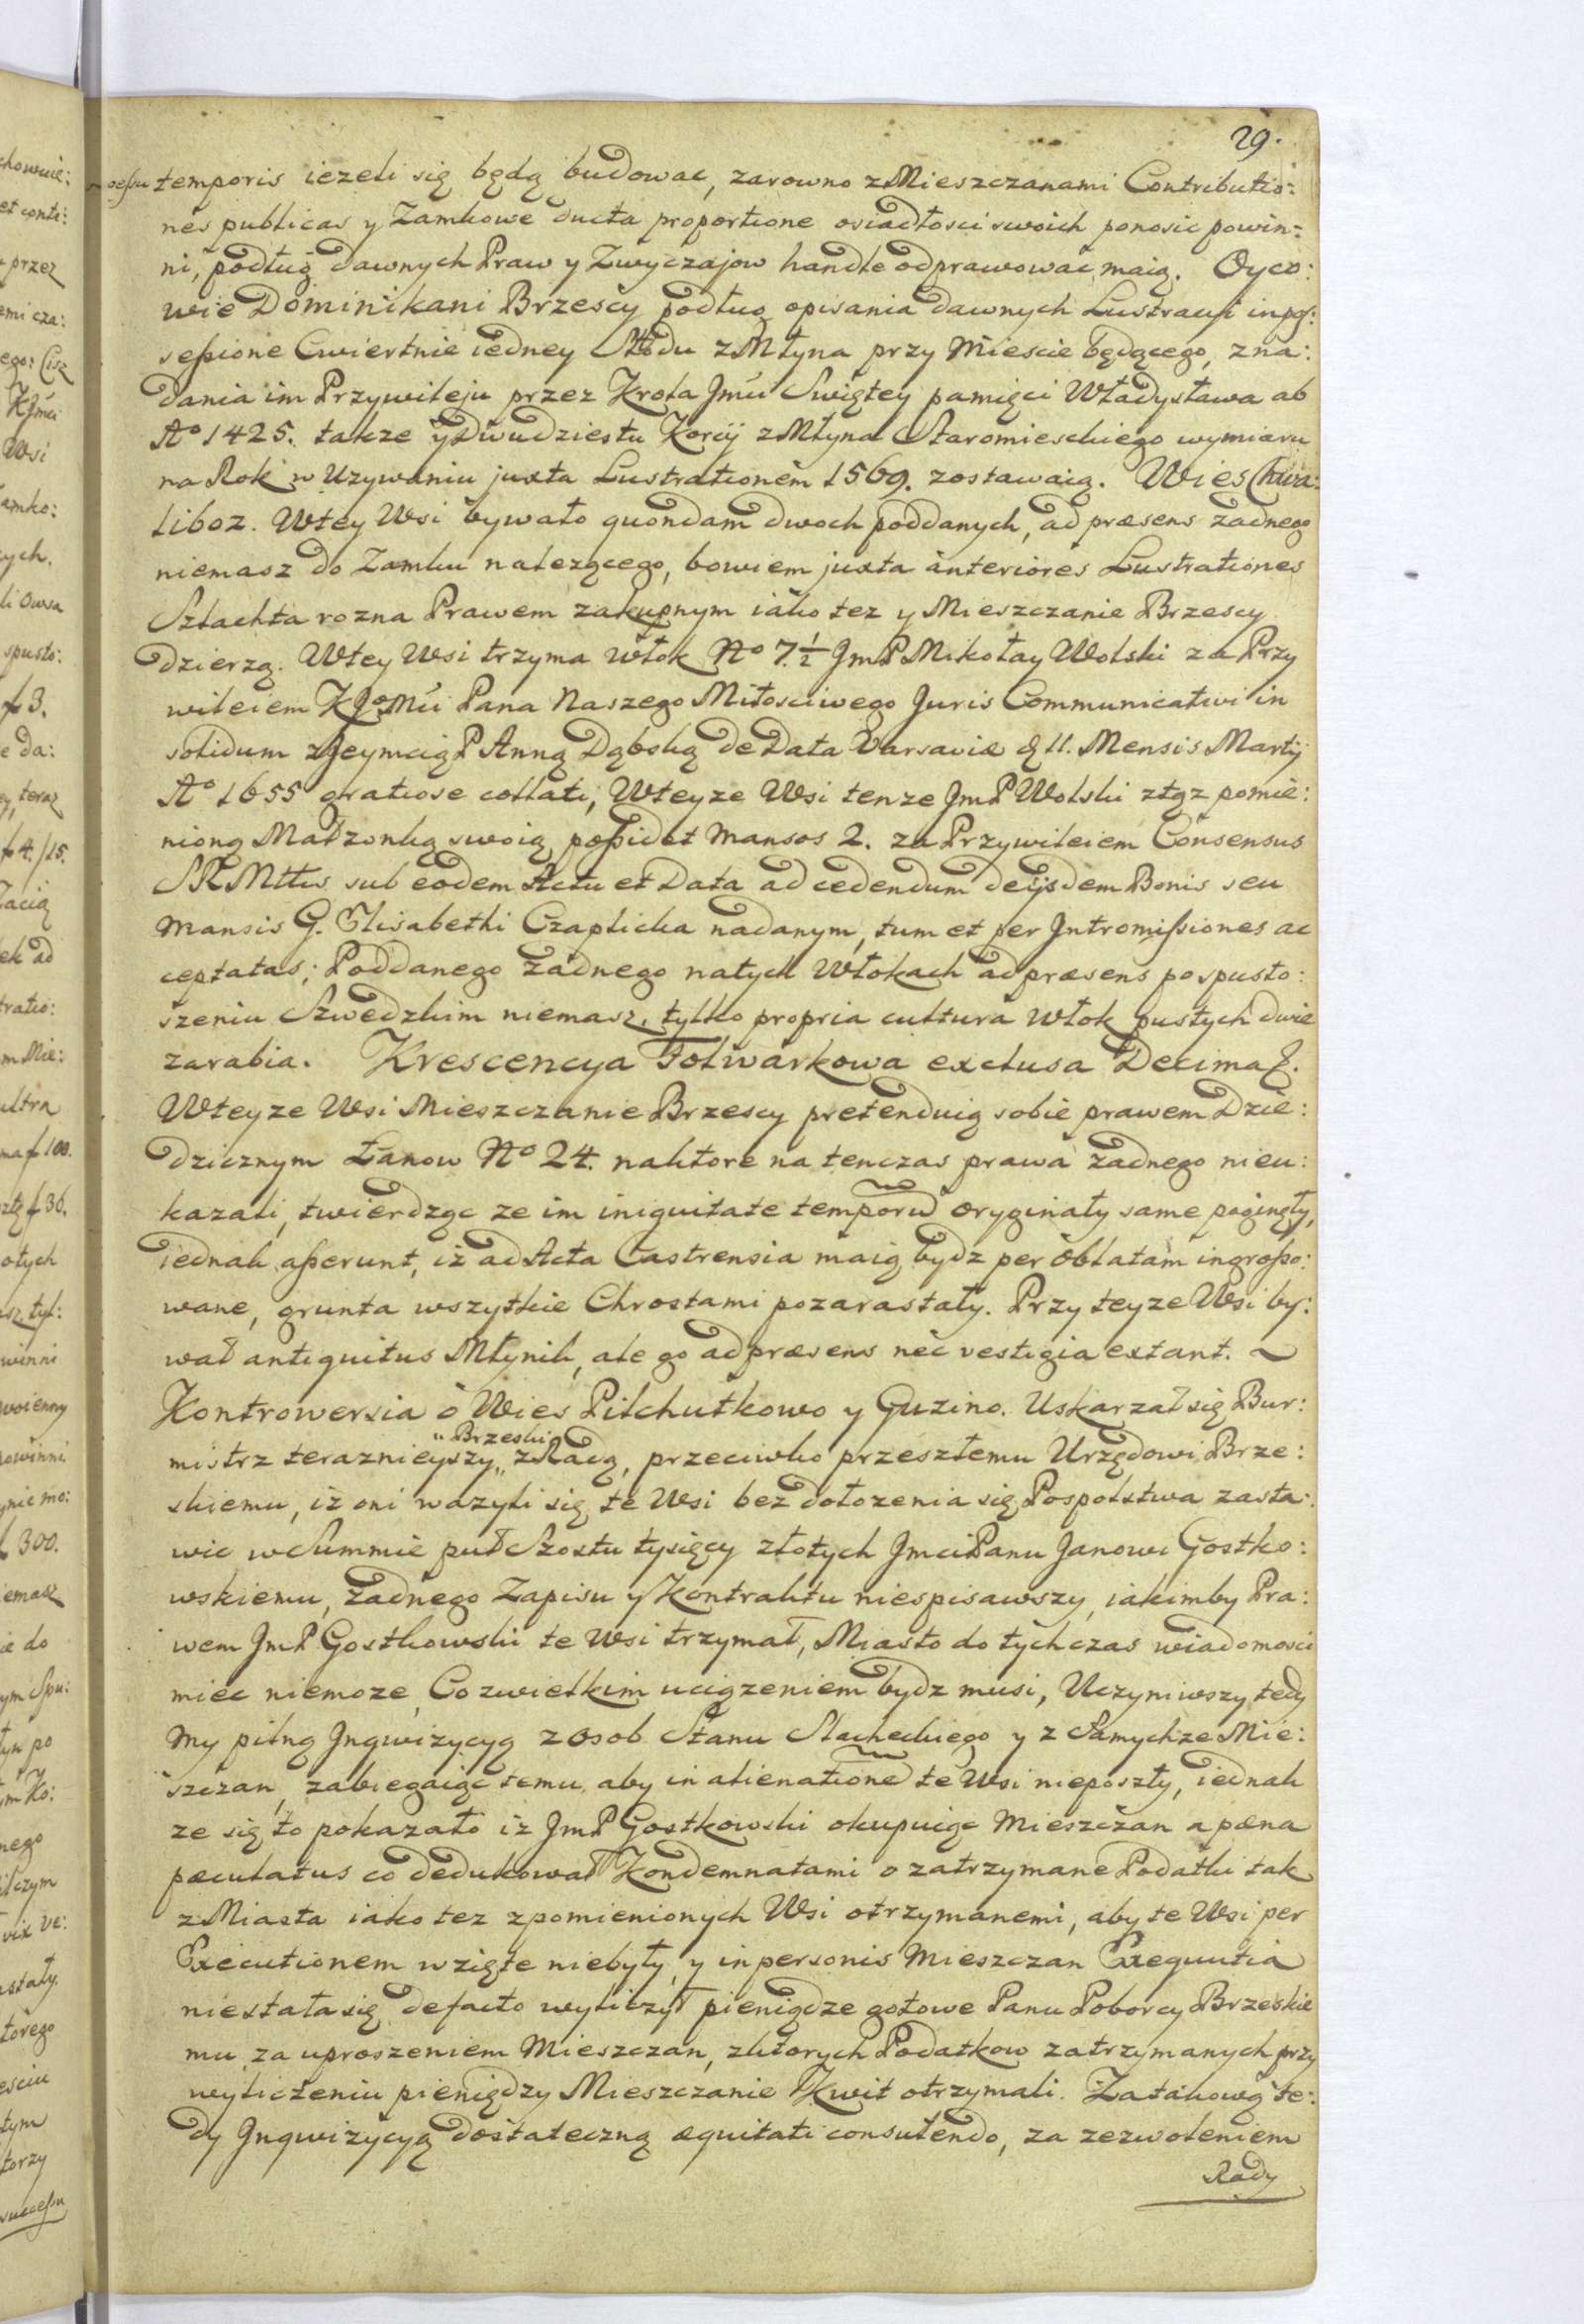 29.
temporis iezeli się będą budowac, zarowno z Mieszczanami Contributio:
nes publicas y Zamkowe ducta proportione osiadłosci swoich ponosic powin:
ni, podług dawnych Praw y Zwyczajow handle odprawować maią. Oyco:
wie Dominikani Brzescy podług opisania dawnych Lustracyi in pos:
sessione Cwiertnie iedney Słodu z Młyna przy Miescie będącego, z na:
dania im Przywileju przez Krola Jmći Swiętey pamięci Władysława ab
Aº 1425. takze y Dwudziestu Korcy z Młyna Staromieskiego wymiaru
na Rok w Uzywaniu juxta Lustrationem 1569. zostawaią. Wies Chwa:
liboz. W tey Wsi bywało quondam dwoch poddanych, ad præsens zadnego
niemasz do Zamku nalezącego, bowiem juxta anteriores Lustrationes
Szlachta rozna Prawem zakupnym iako tez y Mieszczanie Brzescy
dzierzą. W tey Wsi trzyma włok Nº 7.½ JmP Mikołay Wolski za Przy
wileiem KJoMći Pana Naszego Miłosciwego Juris Communicativi in
solidum z Jeymcią P Anną Dąbską de Data Varsaviæ d 11. Mensis Martij
Aº 1655 gratiose collati, W teyze Wsi tenze JmP Wolski z tąz pomie:
nioną Małzonką swoią possidet Mansos 2. za Przywileiem Consensus
SRMttis sub eodem Actu et Data ad cedendum de ijsdem Bonis seu
Mansis G. Elisabethi Czaplicka nadanym, tum et per Intromissiones ac
ceptatas; Poddanego zadnego na tych Włokach ad præsens po spusto:
szeniu Szwedzkim niemasz, tylko propria cultura Włok pustych dwie
zarabia. Krescencya Folwarkowa exclusa Decima f.
W teyze Wsi Mieszczanie Brzescy pretenduią sobie prawem Dzie:
dzicznym Łanow Nº 24. na ktore na tenczas prawa zadnego nieu:
kazali, twierdząc ze im iniquitate temporu oryginały same poginęły,
iednak asserunt, iz ad Acta Castrensia maią bydz per oblatam ingrosso:
wane, grunta wszytkie Chrostami pozarastały. Przy teyze Wsi by:
wał antiquitus Młynik, ale go ad præsens nec vestigia extant.
Kontrowersia o Wies Pilchutkowo y Guzino. Uskarzał się Bur:
mistrz teraznieyszy "Brzeski" z Radą, przeciwko przeszłemu Urzędowi Brze:
skiemu, iz oni wazyli się te Wsi bez dołozenia się Pospolstwa zasta:
wic w Summie puł Szostu tysięcy złotych Jmci Panu Janowi Gostko:
wskiemu, zadnego Zapisu y Kontraktu niespisawszy, iakimby Pra:
wem JmP Gostkowski te Wsi trzymał, Miasto do tych czas wiadomosci
miec niemoze, Co z wielkim uciązeniem bydz musi, Uczyniwszy tedy
my pilną Inqwizycyą z osob Stanu Slacheckiego y z Samychze Mie:
szczan, zabiegaiąc temu, aby in alienatione te Wsi nieposzły, iednak
ze się to pokazało iz JmP Gostkowski okupuiąc Mieszczan a pæna
pæculatus co dedukował Kondemnatami o zatrzymane Podatki tak
z Miasta iako tez z pomienionych Wsi otrzymanemi, aby te Wsi per
Executionem wzięte niebyły, y in personis Mieszczan Exequutia
niestała się, de facto wyliczył pieniądze gotowe Panu Poborcy Brzeskie
mu za uproszeniem Mieszczan, z ktorych Podatkow zatrzymanych przy
wyliczeniu pieniędzy Mieszczanie Kwit otrzymali. Za takową te:
dy Inqwizycyą dostateczną æquitati consulendo, za zezwoleniem
Rady